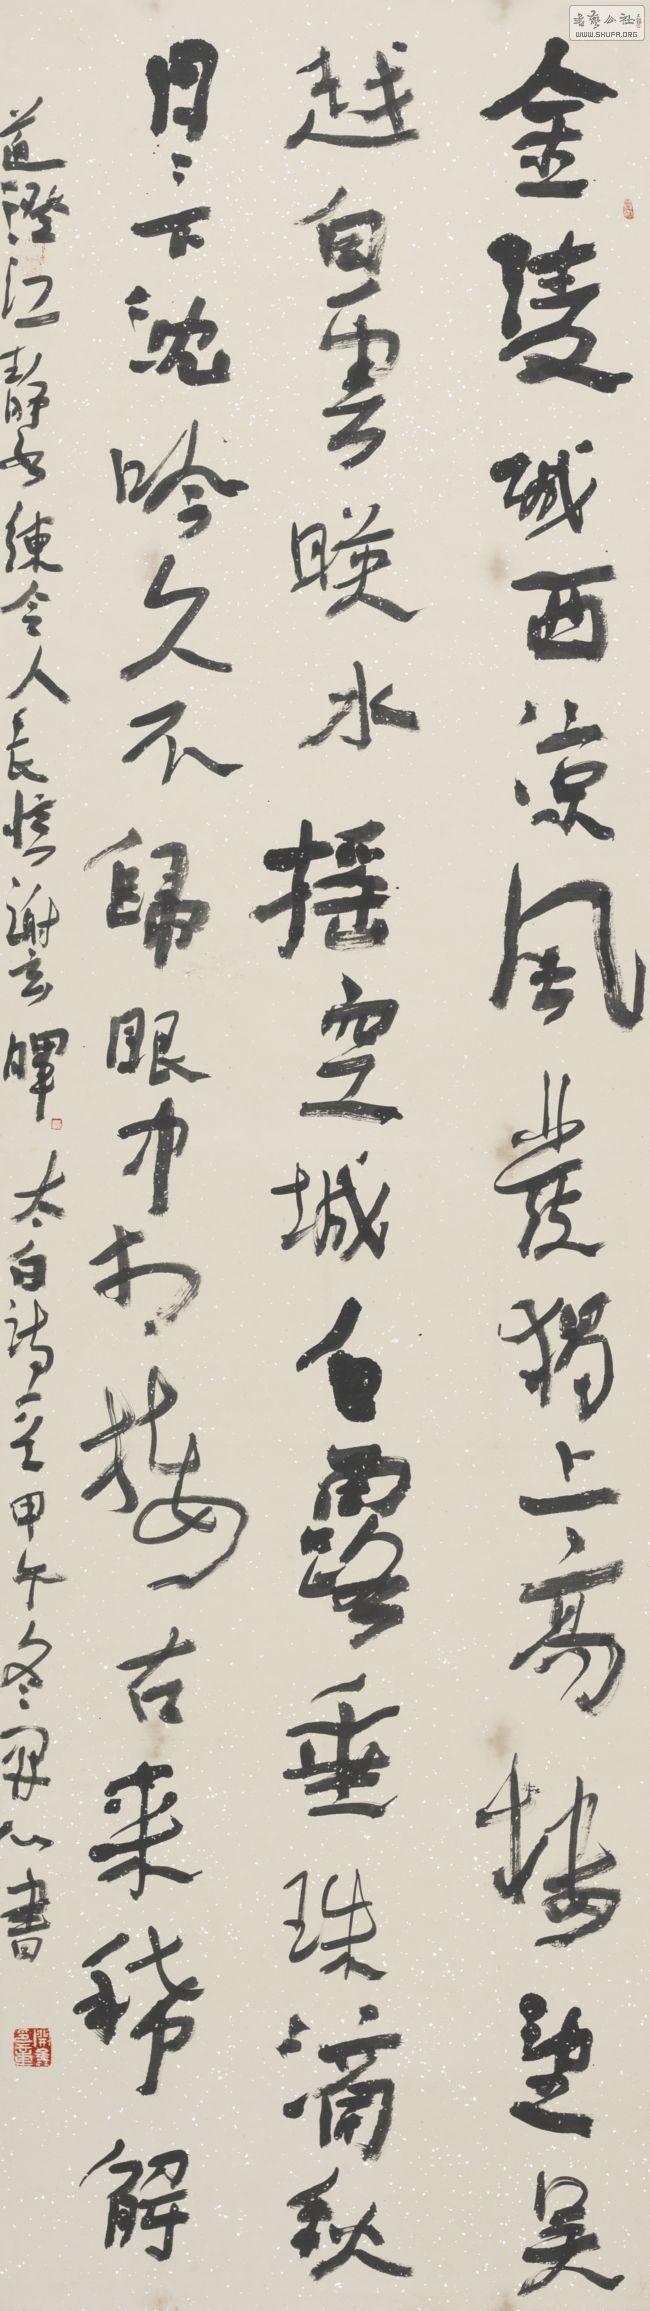 書藝公社
WWW.SHUFA.ORG
金陵城西涼風發獨上高樓望吴
越白雲暎水摇空城白露垂珠滴秋
月〻下沈吟久不歸眼中相接古来稀解
道澄江静如練令人長憶謝玄暉 太白詩一首甲午冬書